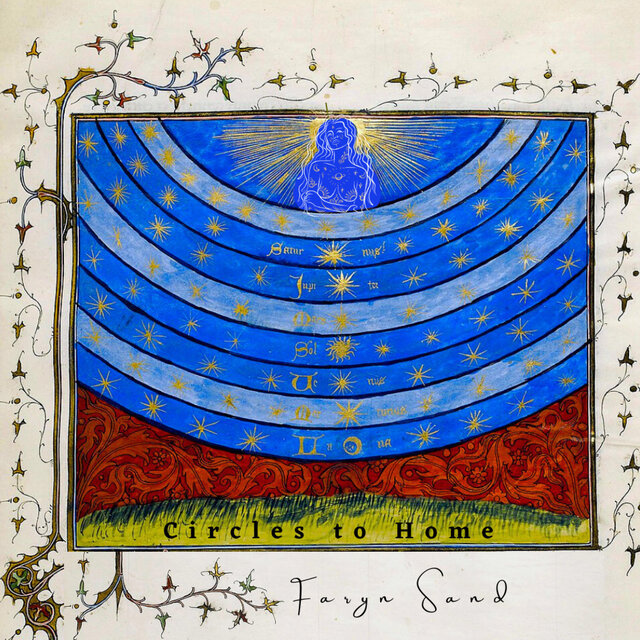 Satur nus
Jupi ter
Mars
Sol
Ve nus
Mer curius
Lu na
Circles to Home
Faryn Sand